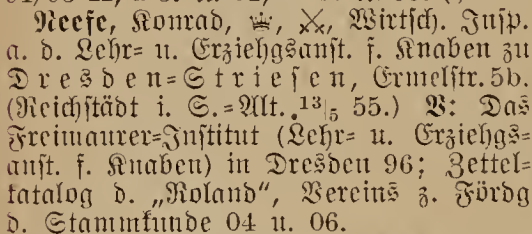 Neefe, Konrad, ♕, ⚔, Wirtsch. Insp.
a. d. Lehr= u. Erziehgsanst. f. Knaben zu
Dresden=Striesen, Ermelstr. 5b.
(Reichstädt i. S.=Alt. 13|5 55.) V: Das
Freimaurer=Institut (Lehr= u. Erziehgs=
anst. f. Knaben) in Dresden 96; Zettel=
katalog d. „Roland“, Vereins z. Fördg
d. Stammkunde 04 u. 06.